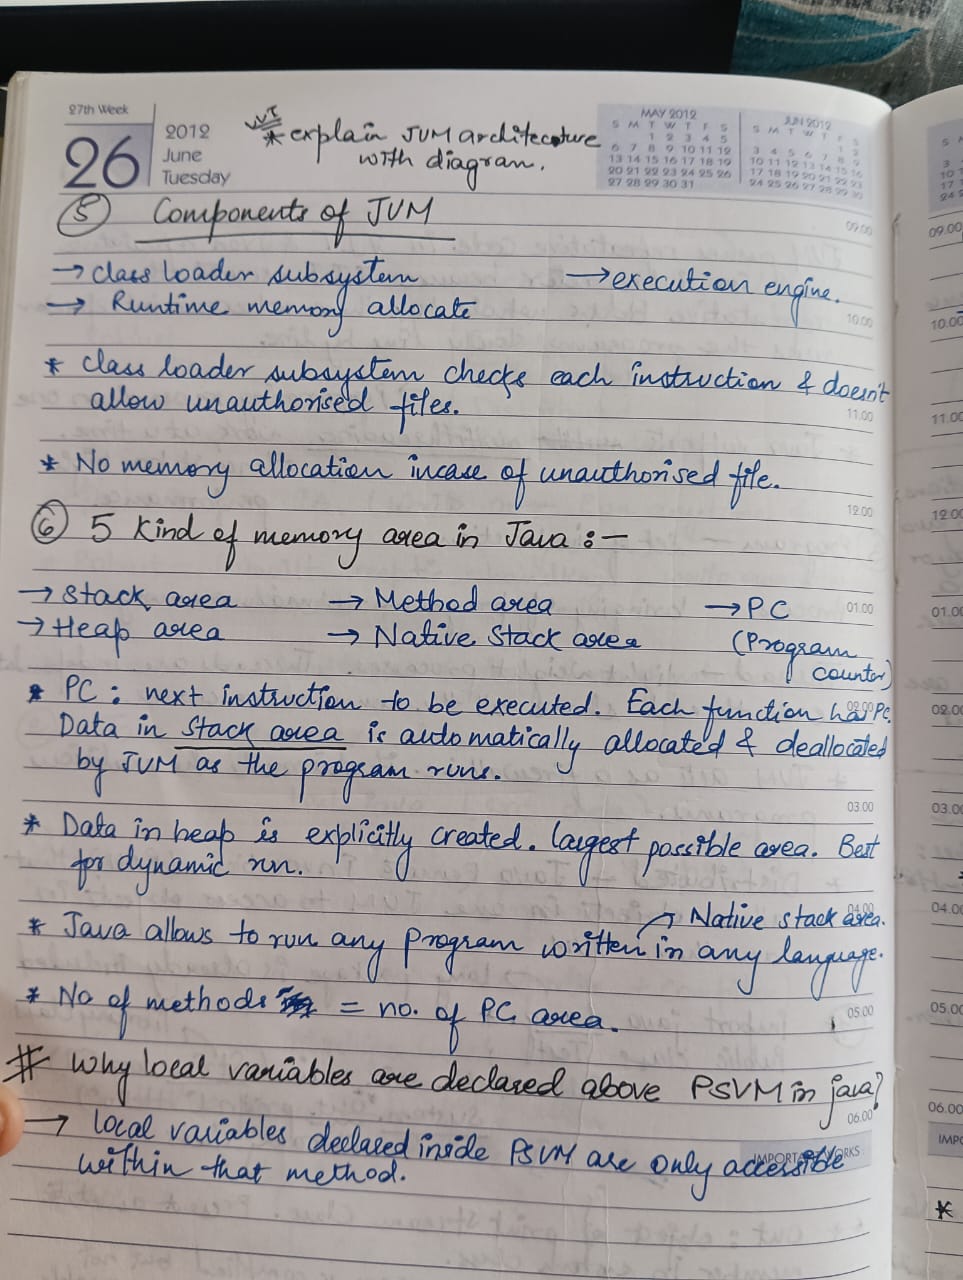 27th Week
26
2012
June
Tuesday
VVI
* explain JVM architecture
with diagram.
MAY 2012
S M T W T F S
1 2 3 4 5
6 7 8 9 10 11 12
13 14 15 16 17 18 19
20 21 22 23 24 25 26
27 28 29 30 31
JUN 2012
S M T W T F S
1 2
3 4 5 6 7 8 9
10 11 12 13 14 15 16
17 18 19 20 21 22 23
24 25 26 27 28 29 30
⑤ Components of JVM
09.00
→ class loader subsystem → execution engine.
→ Runtime memory allocate
10.00
* class loader subsystem checks each instruction & doesn't
allow unauthorised files.
11.00
* No memory allocation incase of unauthorised file.
12.00
⑥ 5 Kind of memory area in Java :-
→ Stack area → Method area → PC
01.00
→ Heap area → Native Stack area (Program
counter)
* PC : next instruction to be executed. Each function has PC.
02.00
Data in Stack area is automatically allocated & deallocated
by JVM as the program runs.
03.00
* Data in heap is explicitly created. largest possible area. Best
for dynamic run.
04.00
→ Native stack area.
* Java allows to run any program written in any language.
* No of methods = no. of PC area.
05.00
# Why local variables are declared above PSVM in java?
06.00
→ local variables declared inside PSVM are only accessible
IMPORTANT WORKS
within that method.
09.00
10.00
11.00
12.00
01.00
02.00
03.00
04.00
05.00
06.00
IMPO
*